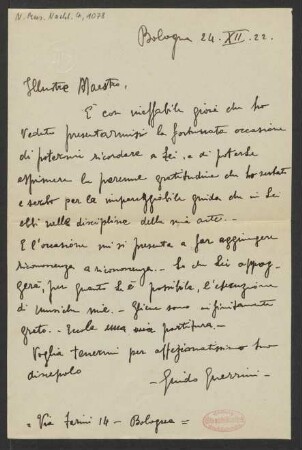 N. Mus. Nachl. 4, 1078
Bologna 24. XII. 22.
Illustre Maestro,
È con ineffabile gioia che ho
veduto presentarmisi la fortunata occasione
di potermi ricordare a Lei, e di poterle
esprimere la perenne gratitudine che ho serbato
e serbo per la impareggiabile guida che in Lei
ebbi nelle discipline della mia arte.
E l'occasione mi si presenta a far aggiungere
riconoscenza a riconoscenza. - So che Lei appog-
gerà, per quanto Le è possibile, l'esecuzione
di musiche mie. - Gliene sono infinitamente
grato. - Eccole una mia partitura. -
Voglia tenermi per affezionatissimo Suo
discepolo
- Guido Guerrini -
= Via Farini 14 - Bologna =